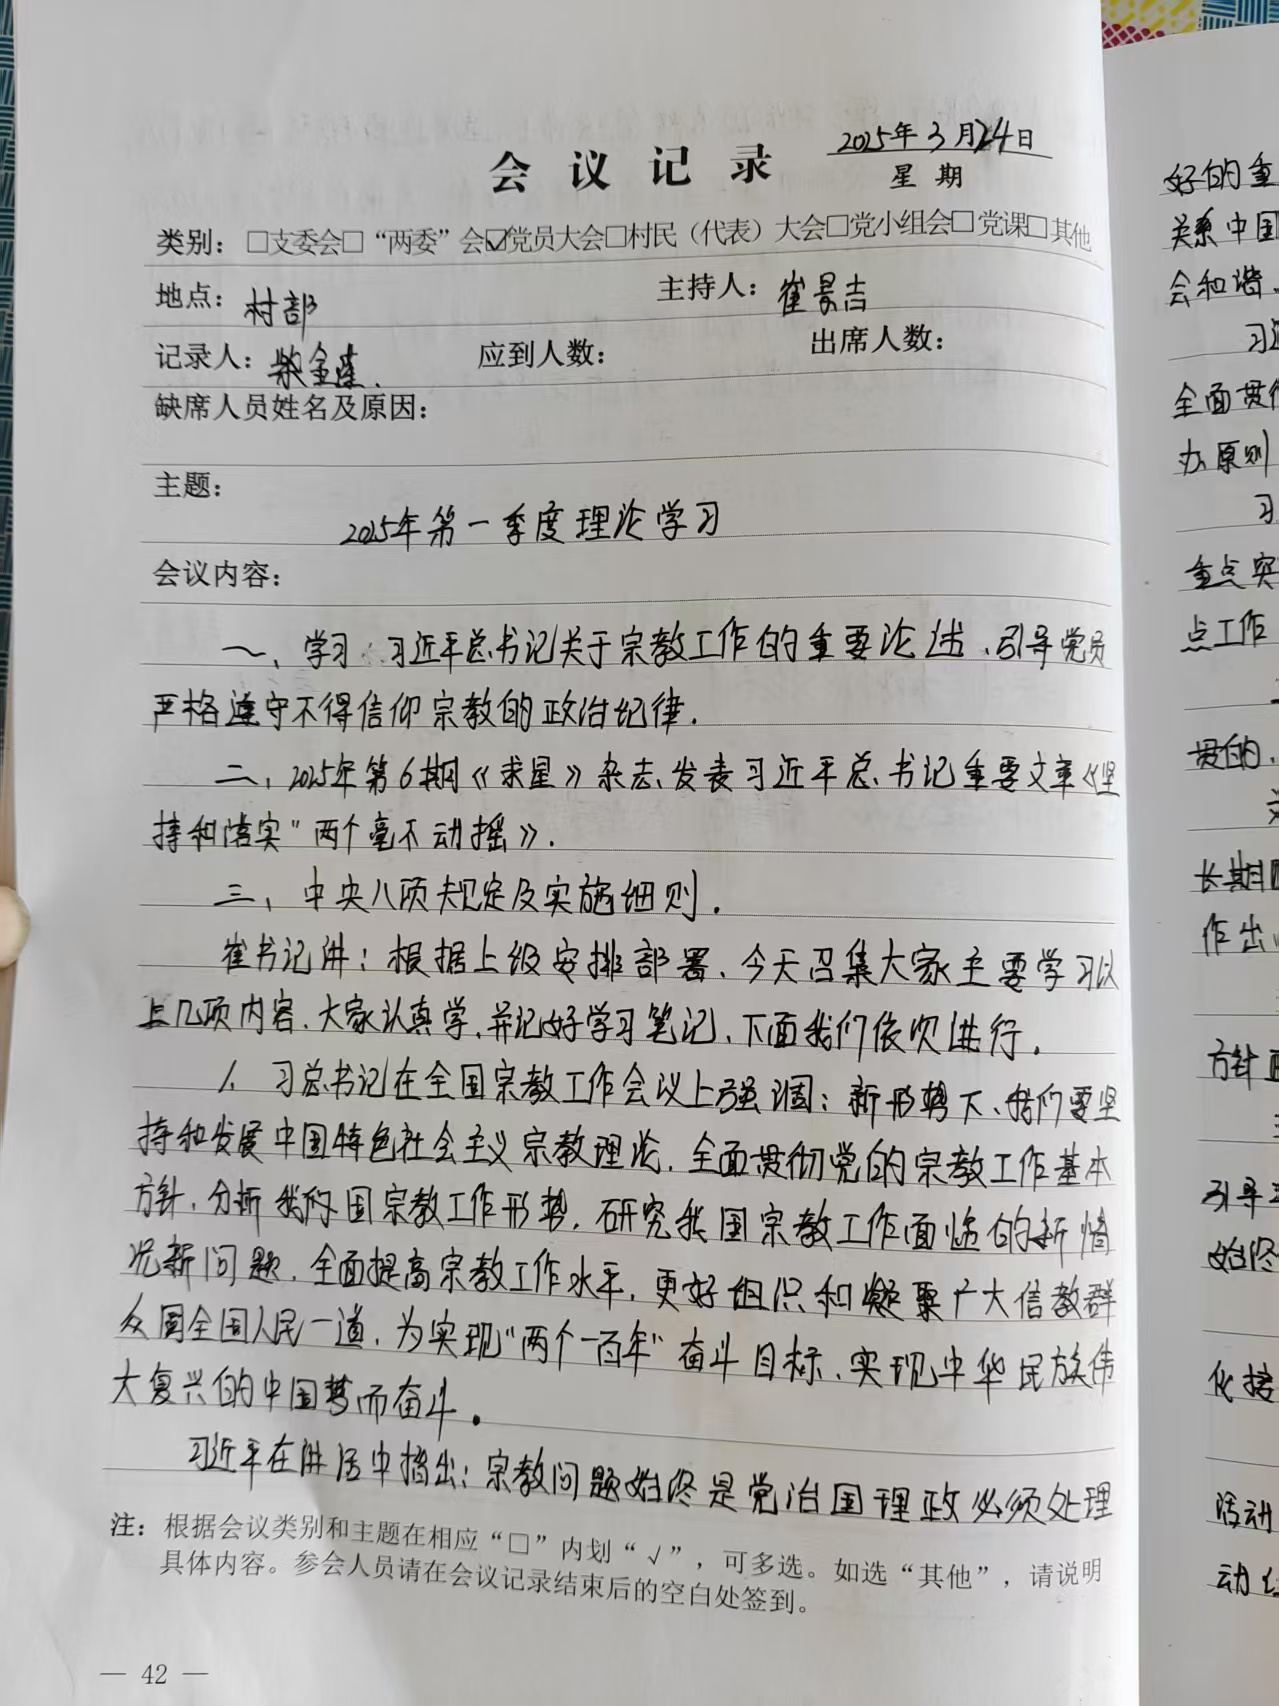 会议记录
2025年3月24日
星期
类别：□支委会□“两委”会☑党员大会□村民（代表）大会□党小组会□党课□其他
地点：村部 主持人：崔景吉
记录人： 应到人数： 出席人数：
缺席人员姓名及原因：
主题：
2025年第一季度理论学习
会议内容：
一、学习习近平总书记关于宗教工作的重要论述、引导党员
严格遵守不得信仰宗教的政治纪律.
二、2025年第6期《求星》杂志、发表习近平总书记重要文章《坚
持和落实"两个毫不动摇》.
三、中央八项规定及实施细则.
崔书记讲：根据上级安排部署、今天召集大家主要学习以
上几项内容、大家认真学、并记好学习笔记、下面我们依次进行.
1、习总书记在全国宗教工作会议上强调：新形势下、我们要坚
持和发展中国特色社会主义宗教理论、全面贯彻党的宗教工作基本
方针、分析我国宗教工作形势、研究我国宗教工作面临的新情
况新问题、全面提高宗教工作水平、更好组织和凝聚广大信教群
众同全国人民一道、为实现"两个一百年"奋斗目标、实现中华民族伟
大复兴的中国梦而奋斗.
习近平在讲话中指出：宗教问题始终是党治国理政必须处理
注：根据会议类别和主题在相应“□”内划“√”，可多选。如选“其他”，请说明
具体内容。参会人员请在会议记录结束后的空白处签到。
— 42 —
好的重
关系中国
会和谐、
习近
全面贯彻
办原则
习
重点突
点工作
贯的、
长期
作出
方针
引导
始终
化接
活动
动